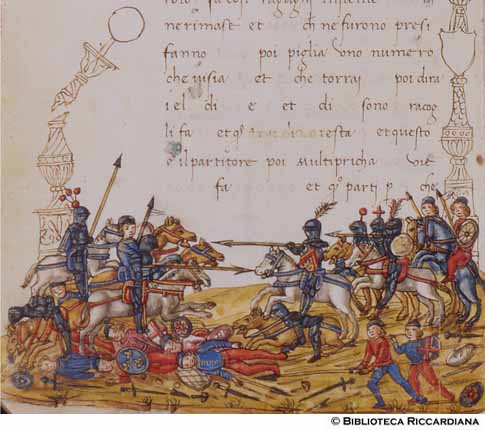 nerimast et ch ne furono presi
fanno poi piglia uno numero
che visia et che torrai poi dira
i el di e et di sono racog
li fa et q° resta et questo
e il partitore poi multipricha vie
fa et q° parti p che
© BIBLIOTECA RICCARDIANA